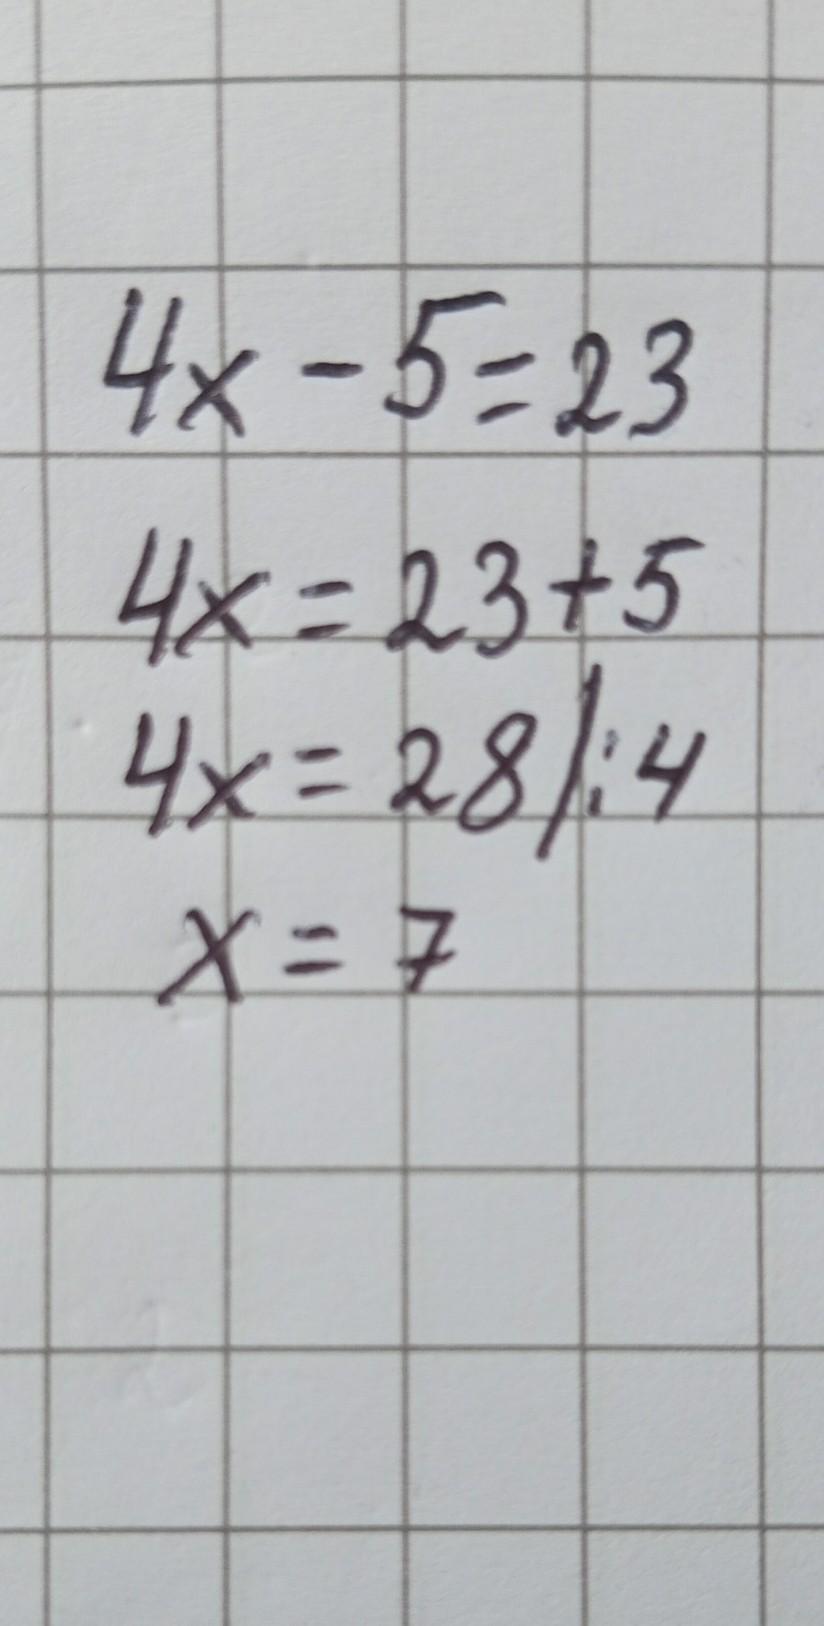 4x - 5 = 23
4x = 23 + 5
4x = 28 /:4
x = 7